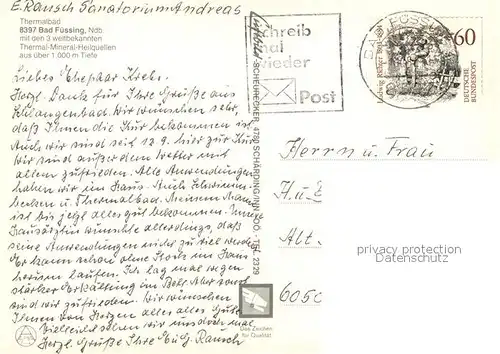 E. Rausch Sanatorium Andreas
Thermalbad
8397 Bad Füssing, Ndb.
mit den 3 weltbekannten
Thermal-Mineral-Heilquellen
aus über 1.000 m Tiefe
Liebes Ehepaar Krebs.
Herzl. Dank für Ihre Grüße aus
Schlangenbad. Wir wünschen sehr,
daß Ihnen die Kur bekommen ist.
Auch wir sind seit 12.9. hier zur Kur.
Wir sind außer dem Wetter mit
allem zufrieden. Alle Anwendungen
haben wir im Haus. Auch Schwimm-
becken u. Thermalbad. Meinem Mann
ist bis jetzt alles gut bekommen. Unser
Hausärztin wünschte allerdings, daß
seine Anwendungen nicht zu viel werden
Er kann schon ohne Stock im Haus
herum laufen. Ich lag mal wegen
starker Erkältung im Bett. Aber sonst
sind wir zufrieden. Wir wünschen
Ihnen von Herzen alles alles Gute
Vielleicht sehen wir uns doch mal.
Herzl. Grüße Ihre Rausch
Schreib
mal
wieder
Post
BAD FÜSSING
60
Ludwig Richter
DEUTSCHE
BUNDESPOST
SCHEUHRECKER, 4780 SCHÄRDING/INN, OÖ. - TEL. 2329
Herrn u. Frau
H. u. E
Alt.
6050
privacy protection
Datenschutz
Das Zeichen
für Qualität